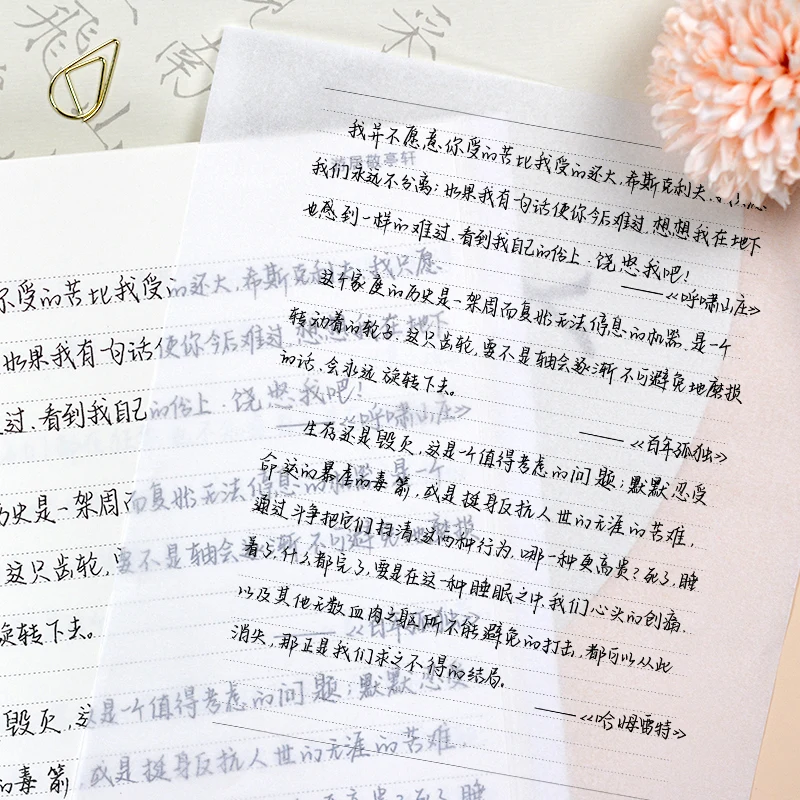 飛
南
采
山
游居敬亭轩
我并不愿意你受的苦比我受的还大,希斯克利夫,
我们永远不分离;如果我有句话使你今后难过,想想我在地下
也感到一样的难过,看到我自己的份上,饶恕我吧!
——《呼啸山庄》
这个家庭的历史是一架周而复始无法停息的机器,是一个
转动着的轮子,这只齿轮,要不是轴会逐渐不可避免地磨损
的话,会永远旋转下去。
——《百年孤独》
生存还是毁灭,这是一个值得考虑的问题;默默忍受
命运的暴虐的毒箭,或是挺身反抗人世的无涯的苦难,
通过斗争把它们扫清,这两种行为,哪一种更高贵?死了,睡
着了,什么都完了,要是在这一种睡眠之中,我们心头的创痛,
以及其他无数血肉之躯所不能避免的打击,都可以从此
消失,那正是我们求之不得的结局。
——《哈姆雷特》
你受的苦比我受的还大,希斯克利夫,我只愿
如果我有句话使你今后难过,想想我在地下
过,看到我自己的份上,饶恕我吧!
——《呼啸山庄》
历史是一架周而复始无法停息的机器,是一个
这只齿轮,要不是轴会逐渐不可避免地磨损
旋转下去。
——《百年孤独》
毁灭,这是一个值得考虑的问题;默默忍受
的毒箭,或是挺身反抗人世的无涯的苦难,